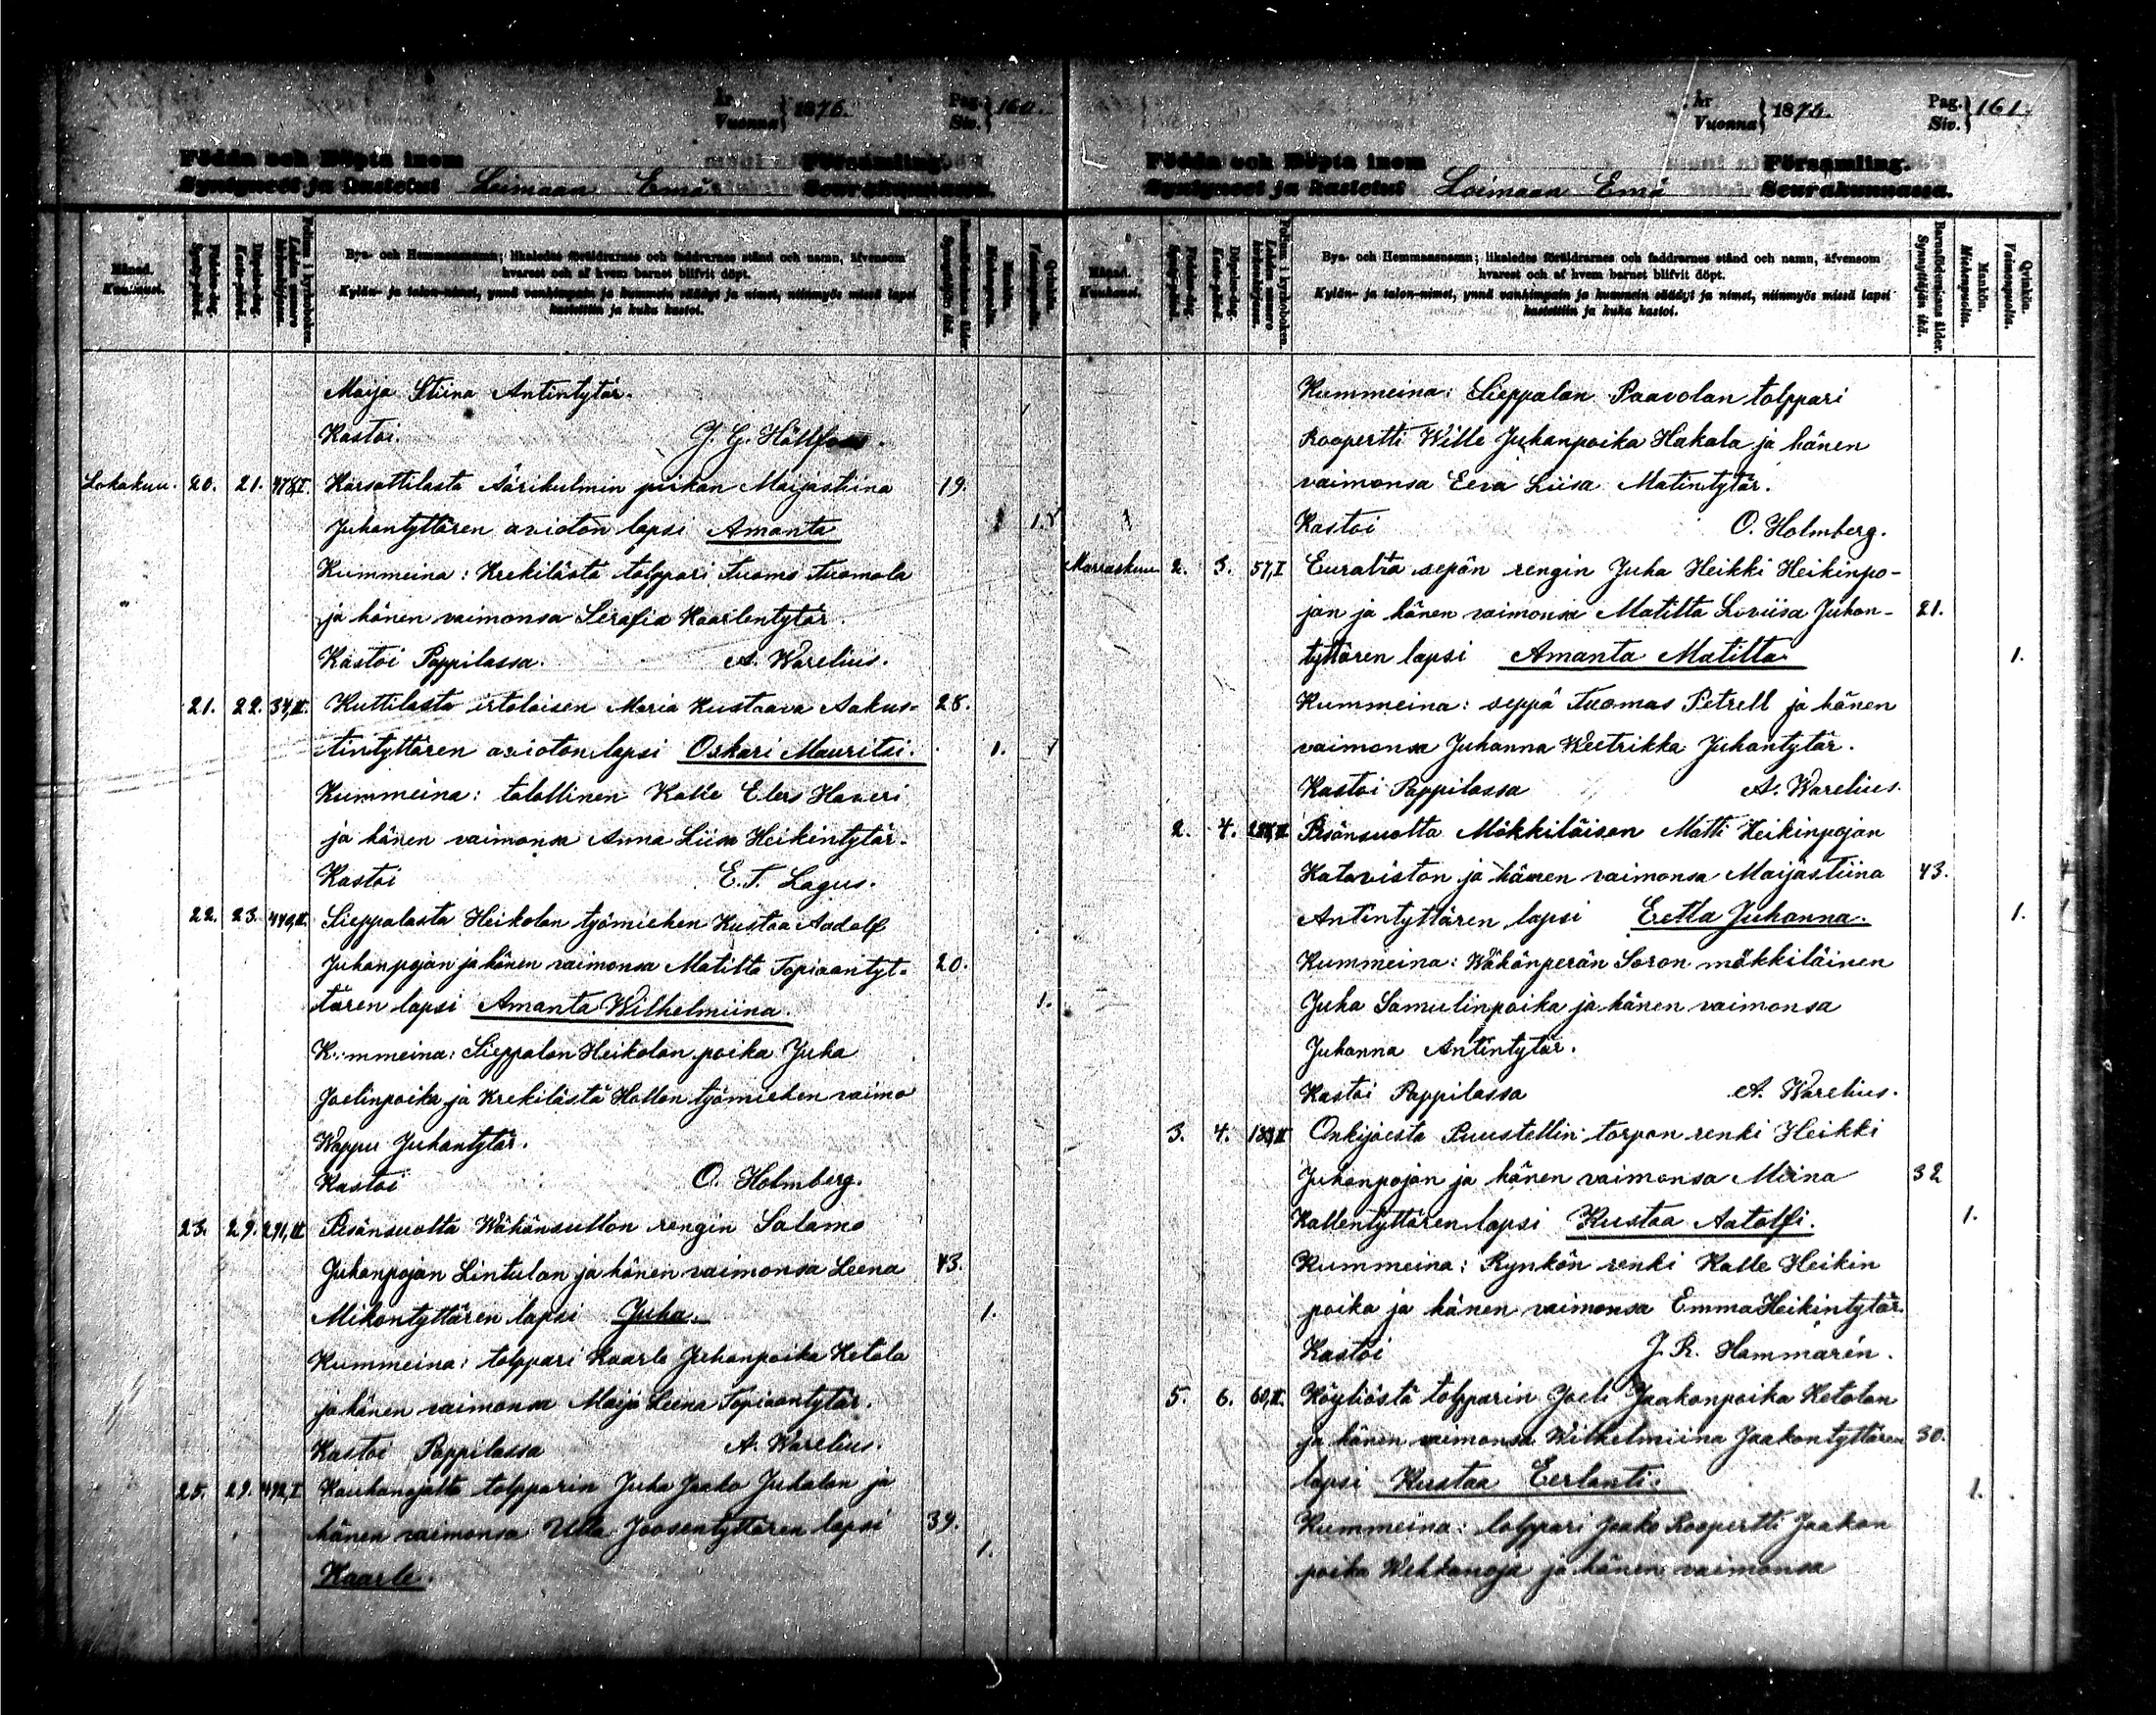 År
Vuonna } 1876.
Pag.
Siv. } 160.
Födda och Döpta inom Församling.
Syntyneet ja kastetut Loimaan Emä Seurakunnassa.
Månad.
Kuukausi.
Födelse-dag.
Synty-päivä.
Döpelse-dag.
Kaste-päivä.
Folium i kyrkoboken.
Lehden numero kirkonkirjassa.
Bya- och Hemmansnamn; likaledes föräldrarnes och faddrarnes stånd och namn, äfvensom
hvarest och af hvem barnet blifvit döpt.
Kylän- ja talon-nimet, ynnä vanhimpain ja kummein säädyt ja nimet, niinmyös missä lapsi
kastettiin ja kuka kastoi.
Barnaföderskans ålder.
Synnyttäjän ikä.
Mankön.
Miehenpuolia.
Qvinkön.
Vaimonpuolia.
Maija Stiina Antintytär.
Kastoi. J. G. Hällfors.
Lokakuu. 20. 21. 478,I. Karsattilasta Äärikulmin piikan Maijastiina 19.
Juhantyttären avioton lapsi Amanta 1.
Kummeina: Krekilästä tolppari Tuomo Tuomola
ja hänen vaimonsa Serafia Kaarlentytär.
Kastoi Pappilassa. A. Warelius.
21. 22. 34,II. Kuttilasta irtolaisen Maria Kustaava Aakus- 28.
tintyttären avioton lapsi Oskari Mauritsi. 1.
Kummeina: talollinen Kalle Elers Haveri
ja hänen vaimonsa Anna Liisa Heikintytär.
Kastoi E. T. Lagus.
22. 23. 440,II. Sieppalasta Heikolan työmiehen Kustaa Aadolf
Juhanpojan ja hänen vaimonsa Matilta Topiaantyt- 20.
tären lapsi Amanta Wilhelmiina. 1.
Kummeina: Sieppalan Heikolan poika Juha
Joelinpoika ja Krekilästä Hollon työmiehen vaimo
Wappu Juhantytär.
Kastoi O. Holmberg.
23. 29. 291,II Pesänsuolta Wähänsullon rengin Salamo
Juhanpojan Lintulan ja hänen vaimonsa Leena 43.
Mikontyttären lapsi Juha. 1.
Kummeina: tolppari Kaarle Juhanpoika Ketola
ja hänen vaimonsa Maija Leena Topiaantytär.
Kastoi Pappilassa A. Warelius.
25. 29. 492,I. Kauhanojalta tolpparin Juha Jaako Juhalan ja
hänen vaimonsa Ulla Joosentyttären lapsi 39.
Kaarle. 1.
År
Vuonna } 1876.
Pag.
Siv. } 161.
Födda och Döpta inom Församling.
Syntyneet ja kastetut Loimaan Emä Seurakunnassa.
Månad.
Kuukausi.
Födelse-dag.
Synty-päivä.
Döpelse-dag.
Kaste-päivä.
Folium i kyrkoboken.
Lehden numero kirkonkirjassa.
Bya- och Hemmansnamn; likaledes föräldrarnes och faddrarnes stånd och namn, äfvensom
hvarest och af hvem barnet blifvit döpt.
Kylän- ja talon-nimet, ynnä vanhimpain ja kummein säädyt ja nimet, niinmyös missä lapsi
kastettiin ja kuka kastoi.
Barnaföderskans ålder.
Synnyttäjän ikä.
Mankön.
Miehenpuolia.
Qvinkön.
Vaimonpuolia.
Kummeina: Sieppalan Paavolan tolppari
Roopertti Wille Juhanpoika Hakala ja hänen
vaimonsa Eeva Liisa Matintytär.
Kastoi O. Holmberg.
Marraskuu 2. 3. 57,I Euralta sepän rengin Juha Heikki Heikinpo-
jan ja hänen vaimonsa Matilta Loviisa Juhan- 21.
tyttären lapsi Amanta Matilta 1.
Kummeina: seppä Tuomas Petrell ja hänen
vaimonsa Juhanna Weetrikka Juhantytär.
Kastoi Pappilassa A. Warelius.
2. 4. Pesänsuolta Mökkiläisen Matti Heikinpojan
Kataviston ja hänen vaimonsa Maijastiina 43.
Antintyttären lapsi Eetla Juhanna. 1.
Kummeina: Wähänperän Soron mökkiläinen
Juha Samulinpoika ja hänen vaimonsa
Juhanna Antintytär.
Kastoi Pappilassa A. Warelius.
3. 4. Onkijoesta Puustellin torpan renki Heikki
Juhanpojan ja hänen vaimonsa Miina 32
Kallentyttären lapsi Kustaa Aatolfi. 1.
Kummeina: Rynkön renki Kalle Heikin
poika ja hänen vaimonsa Emma Heikintytär.
Kastoi J. R. Hammarén.
5. 6. 60,II. Köyliöstä tolpparin Joeli Jaakonpoika Ketolan
ja hänen vaimonsa Wilhelmiina Jaakontyttären 30.
lapsi Kustaa Eerlanti. 1.
Kummeina: tolppari Jaako Roopertti Jaakon
poika Wehkanoja ja hänen vaimonsa